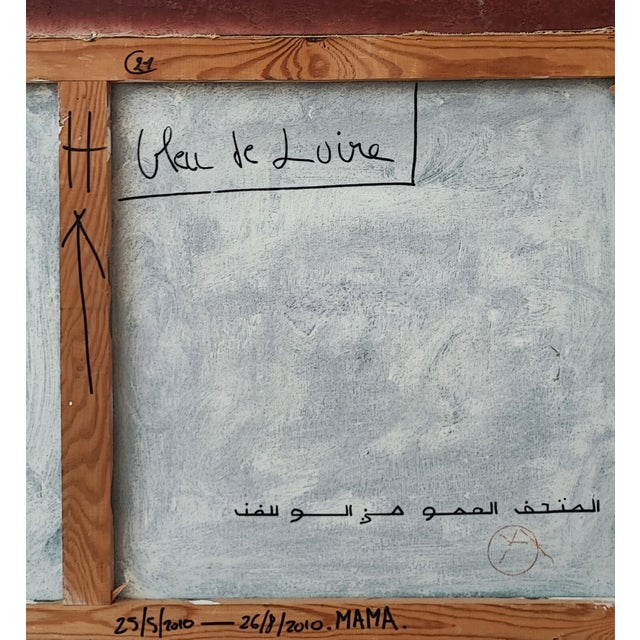 C21
H
bleu de Loire
المتحف العمو مي الـــو للفنـ
25/5/2010 — 26/8/2010. MAMA.